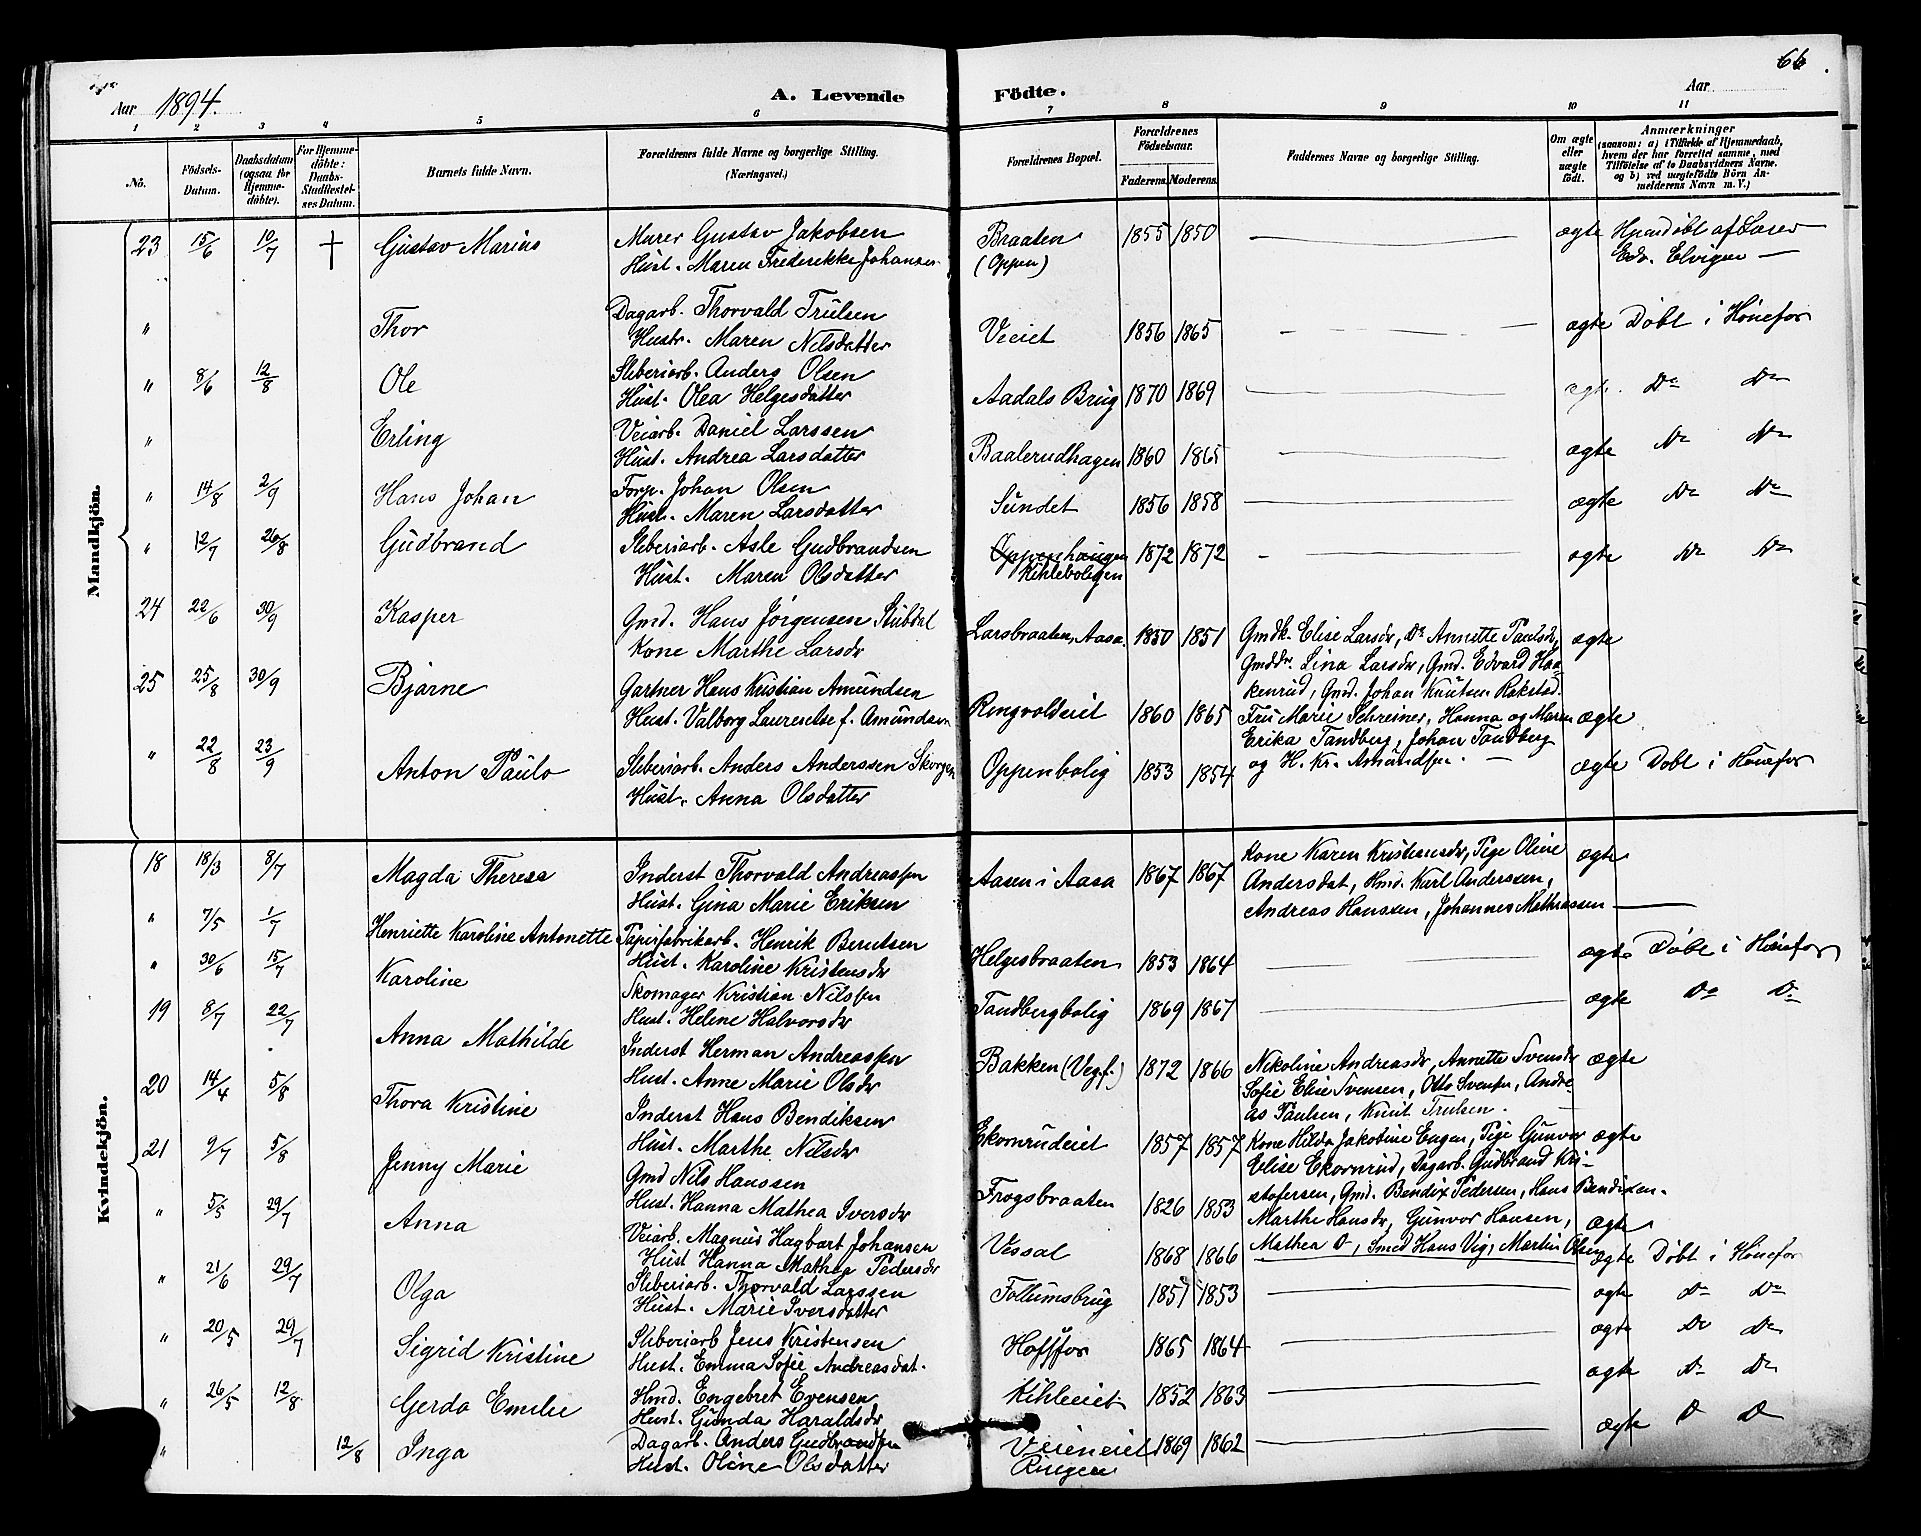 66
Aar 1894. A. Levende Födte. Aar
1 2 3 4 5 6 7 8 9 10 11
No.
Födsels-Datum.
Daabsdatum (ogsaa for Hjemme-döbte).
For Hjemme-döbte: Daabs-Stadfæstel-ses Datum.
Barnets fulde Navn.
Forældrenes fulde Navne og borgerlige Stilling. (Næringsvei.)
Forældrenes Bopæl.
Forældrenes Födselsaar.
Faderens. Moderens.
Faddernes Navne og borgerlige Stilling.
Om ægte eller uægte födt.
Anmærkninger
(saasom: a) i Tilfælde af Hjemmedaab, hvem der har forrettet samme, med Tilföielse af to Daabsvidners Navne. og b) ved uægtefödte Börn An-melderens Navn m. V.)
Mandkjön.
23 15/6 10/7 † Gustav Marius Murer Gustav Jakobsen Braaten 1855 1850 ægte Hjemdøbt af Lærer
Hust. Maren Frederikke Johansen (Oppen) Edv. Elvigen
" Thor Dagarb. Thorvald Trulsen Veiet 1856 1865 ægte Døbt i Hønefos
Hustr. Maren Nilsdatter
" 8/6 12/8 Ole Sliberiarb. Anders Olsen Aadals Brug 1870 1869 ægte Do Do
Hust. Olea Helgesdatter
" Erling Veiarb. Daniel Larssen Baalerudhagen 1860 1865 ægte Do Do
Hust. Andrea Larsdatter
" 14/8 2/9 Hans Johan Forp. Johan Olsen Sundet 1856 1858 ægte Do Do
Hust. Maren Larsdatter
" 12/7 26/8 Gudbrand Sliberiarb. Asle Gudbrandsen Oppenhaugen 1872 1872 ægte Do Do
Hust. Maren Olsdatter Kihleboligen
24 22/6 30/9 Kasper Gmd. Hans Jørgensen Stubdal Larsbraaten, Aasa. 1850 1851 Gmdk. Elise Larsdr, Do Annette Paulsdr, ægte
Kone Marthe Larsdr Gmddr. Lina Larsdr, Gmd. Edvard Haa-
kenrud, Gmd. Johan Knutsen Rakstad.
25 25/8 30/9 Bjarne Gartner Hans Kristian Amundsen Ringvoldeiet 1860 1865 Fru Marie Schreiner, Hanna og Maren ægte
Hust. Valborg Laurentse f. Amundsen Erika Tandberg, Johan Tandberg
og H. Kr. Amundsen.
" 22/8 23/9 Anton Paulo Sliberiarb. Anders Anderssen Skorgen Oppenbolig 1853 1854 ægte Døbt i Hønefos
Hust. Anna Olsdatter
Kvindekjön.
18 18/3 8/7 Magda Theresa Inderst Thorvald Andreassen Aasen i Aasa 1867 1867 Kone Karen Kristiansdr, Pige Oline ægte
Hust. Gina Marie Eriksen Andersdat, Hmd. Karl Anderssen,
Andreas Hansen, Johannes Mathiassen
" 7/5 1/7 Henriette Karoline Antonette Papirfabrikarb. Henrik Berntsen Helgesbraaten 1853 1864 ægte Døbt i Hønefos
Hust. Karoline Kristensdr
" 30/6 15/7 Karoline Skomager Kristian Nilssen Tandbergbolig 1869 1867 ægte Do Do
Hust. Helene Halvorsdr
19 8/7 22/7 Anna Mathilde Inderst Herman Andreassen Bakken (Vegf.) 1872 1866 Nikoline Andreasdr, Annette Svensdr ægte
Hust. Anne Marie Olsdr Sofie Elise Svensen, Otto Svensen, Andre-
as Paulsen, Knut Trulsen.
20 14/4 5/8 Thora Kristine Inderst Hans Bendiksen Ekornrudeiet 1857 1857 Kone Hilda Jakobine Engen, Pige Gunvor ægte
Hust. Marthe Nilsdr Elise Ekornrud, Dagarb. Gudbrand Kri-
stofersen, Gmd. Bendix Pedersen, Hans Bendixen.
21 9/7 5/8 Jenny Marie Gmd Nils Hanssen Frogsbraaten 1826 1853 Marthe Hansdr, Gunvor Hansen, ægte
Hust. Hanna Mathea Iversdr Mathea Do, Smed Hans Vig, Martin Olsen
" 5/5 29/7 Anna Veiarb. Magnus Hagbart Johansen Vessal 1868 1866 ægte Døbt i Hønefos
Hust Hanna Mathea Pedersdr
" 21/6 29/7 Olga Sliberiarb. Thorvald Larssen Follumsbrug 1851 1853 ægte Do Do
Hust. Marie Iversdatter
" 20/5 29/7 Sigrid Kristine Sliberiarb Jens Kristensen Hofsfos 1865 1864 ægte Do Do
Hust. Emma Sofie Andreasdat.
" 26/5 12/8 Gerda Emilie Hmd. Engebret Evensen Kihleeiet 1852 1863 ægte Do Do
Hust. Gunda Haraldsdr
" 12/8 Inga Dagarb. Anders Gudbrandsen Veieneiet 1869 1862 ægte D D
Hust. Oline Olsdatter Ringen